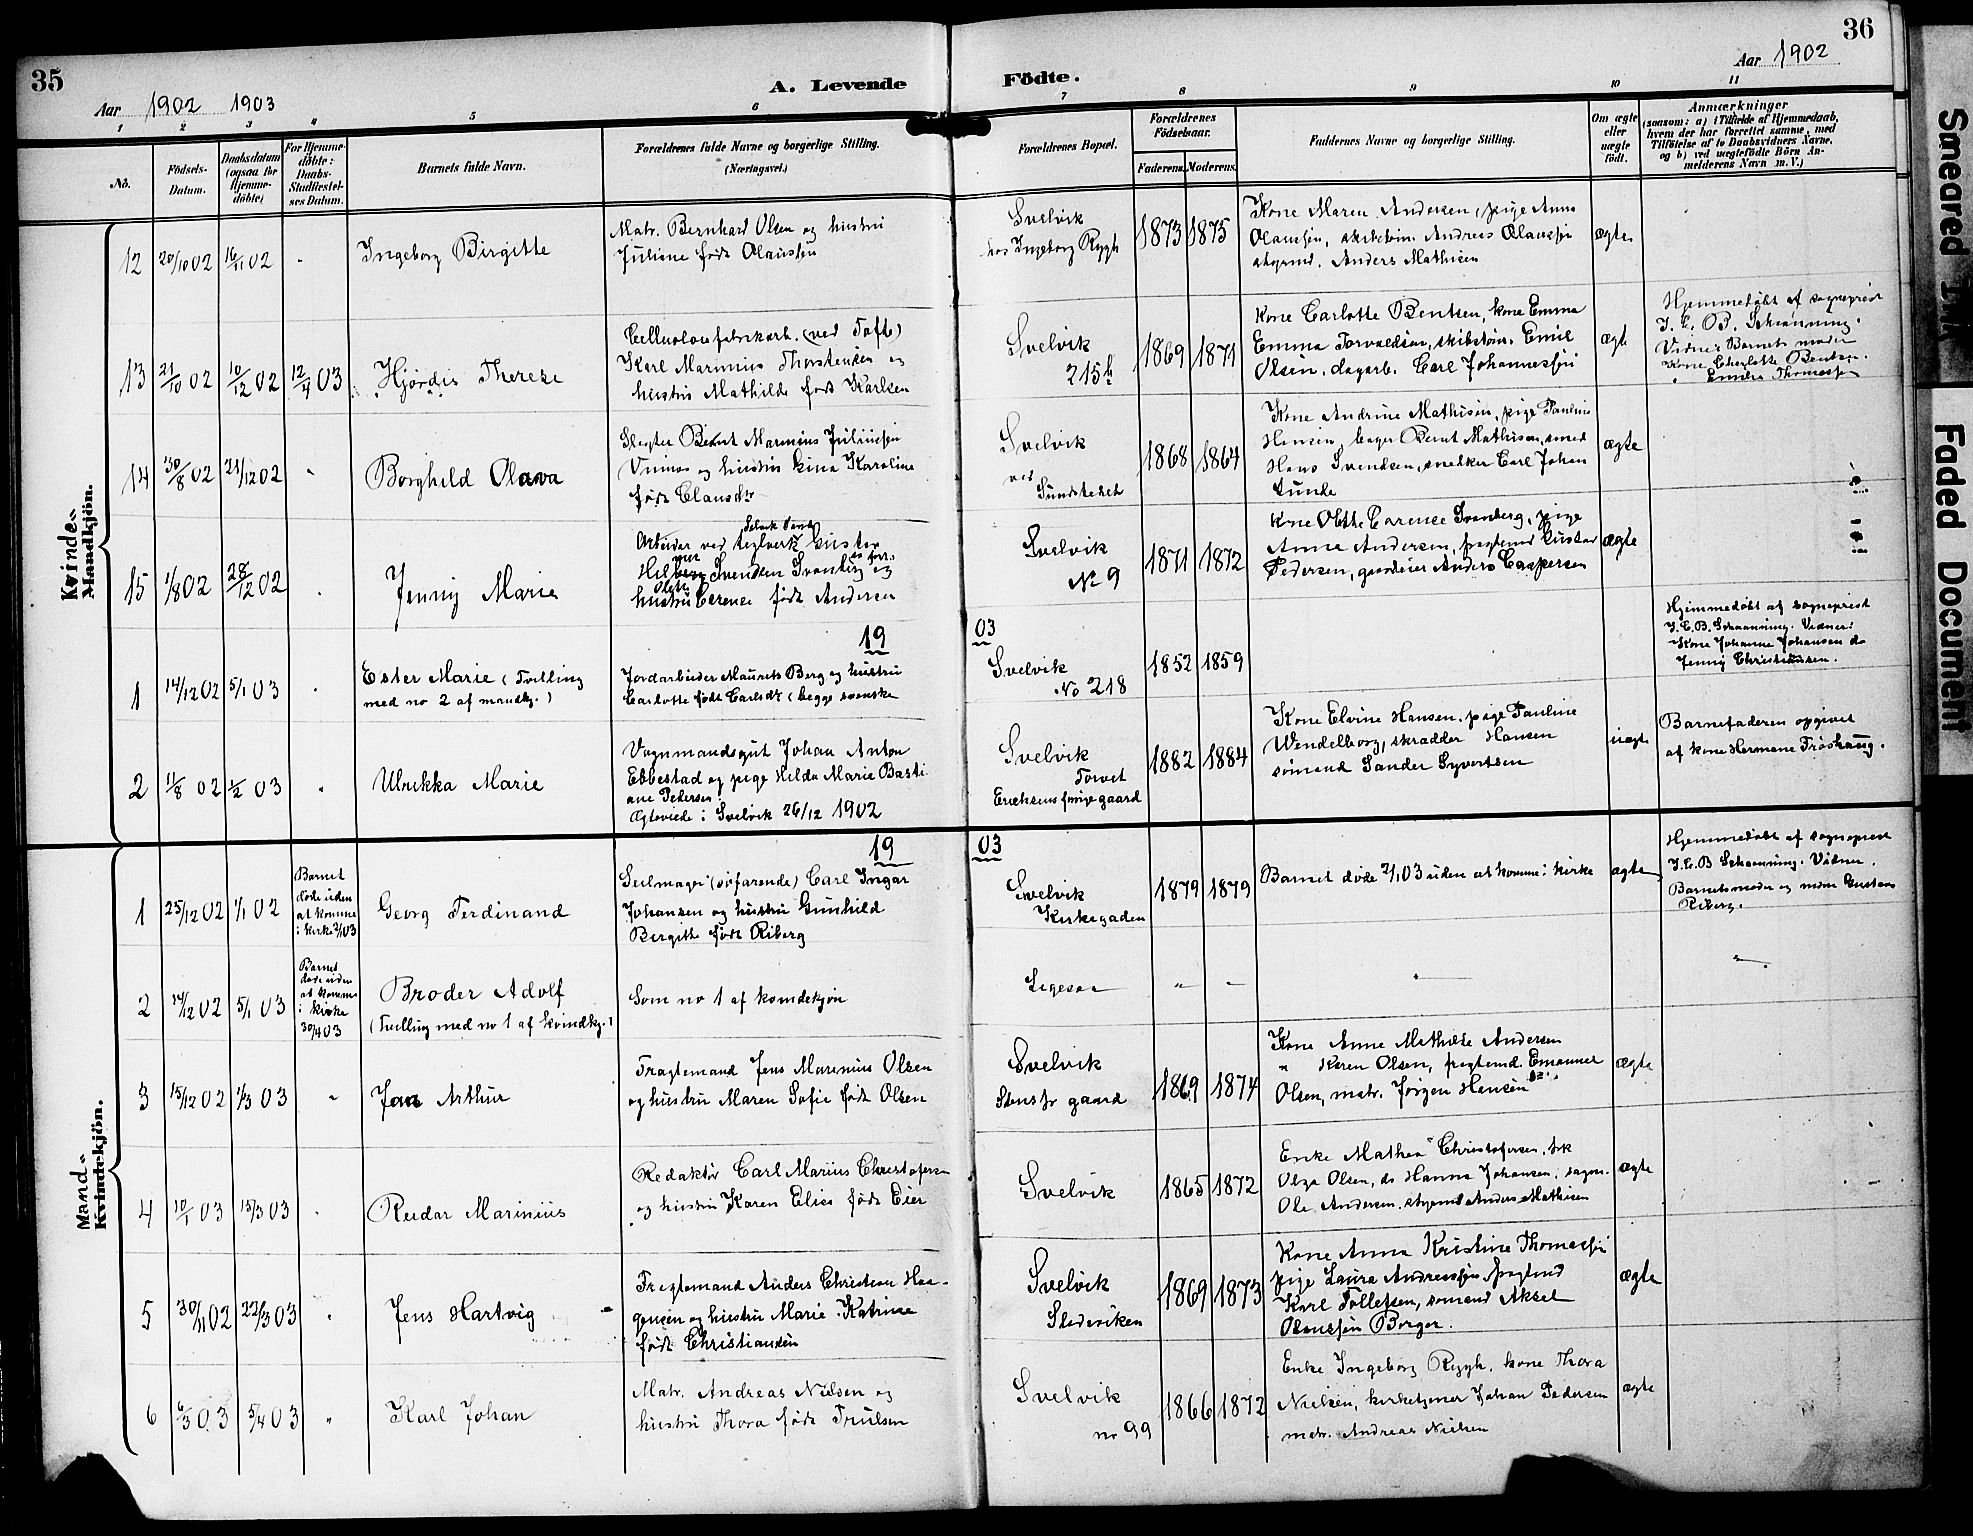 35
Aar 1902 1903
A. Levende
Födte.
Aar 1902
36
1 2 3 4 5 6 7 8 9 10 11
No.
Födsels-
Datum.
Daabsdatum
(ogsaa for
Hjemme-
döbte)
For Hjemme-
döbte:
Daabs-
Stadfæstel-
ses Datum.
Barnets fulde Navn.
Forældrenes fulde Navne og borgerlige Stilling.
(Næringsvei.)
Forældrenes Bopæl.
Forældrenes
Födselsaar.
Faderens. Moderens.
Faddernes Navne og borgerlige Stilling.
Om ægte
eller
uægte
födt.
Anmærkninger
(saasom: a) i Tilfælde af Hjemmedaab,
hvem der har forrettet samme, med
Tilföielse af to Daabsvidners Navne,
og b) ved uægtefödte Börn An-
melderens Navn m. V.)
Kvinde-
Mandkjön.
12 20/10 02 16/11 02 -
Ingeborg Birgitte
Matr. Bernhard Olsen og hustru
Juliane født Olaussen
Svelvik
hos Ingeborg Rygh
1873 1875
Kone Maren Andersen, pige Anna
Olaussen, Andreas Olaussen
Anders Mathisen
ægte
13 21/10 02 10/12 02 12/4 03
Hjørdis Therese
Cellulosefabrikarb. (ved Tofte)
Karl Marinius Thorstensen og
hustru Mathilde født Karlsen
Svelvik
215 b
1869 1871
Kone Carlotte Bentsen, kone Emma
Emma Torvaldsen, skibstøm. Emil
Olsen, dagarb. Carl Johannessen
ægte
Hjemmedøbt af sogneprest
J. C. B. Schanning.
Vidner Barnets moder
Kone Charlotte Bentsen.
Emma Thomassen
14 30/8 02 21/12 02 -
Borghild Olava
Slagter Bernt Marinius Juliussen
og hustru Lina Karoline
født Clausdtr
Svelvik
ved
Sundstedet
1868 1864
Kone Andrine Mathisen, pige Pauline
Hansen, bager Bernt Mathisen, smed
Hans Svendsen, snedker Carl Johan
Lunde
ægte
15 1/8 02 28/12 02 -
Jenny Marie
Selvik Sande
Arbeider ved teglverk Gustav
Svendsen Svanberg og
hustru Cerense født Andersen
Svelvik
No 9
1871 1872
Kone Olette Carense Svanberg, pige
Anna Andersen, fragtemd Gustav
Pedersen, gaardeier Anders Caspersen
ægte
19 03
1 14/12 02 5/1 03 -
Ester Marie (Tvilling
med no 2 af mandkj.)
Jordarbeider Mauritz Berg og hustru
Carlotte født Carlsdtr (begge svenske
Svelvik
No 218
1852 1859
Hjemmedøbt af sogneprest
J.C.B. Schanning. Vidner:
Kone Johanne Johansen do
Jenny Christiansen.
2 11/8 02 1/2 03 -
Ulrikka Marie
Vognmandsgut Johan Anton
Ebbestad og pige Hilda Marie Basti
ane Pedersen
Ægteviede i Svelvik 26/12 1902
Svelvik
Torvet
Erichsens forrige gaard
1882 1884
Kone Elvine Hansen, pige Pauline
Wendelborg, skradder Hansen
sømand Sander Syvertsen
uægte
Barnefaderen opgivet
af kone Hermane Frøshaug.
Mand-
Kvindekjön.
19 03
1 25/12 02 1/1 02
Barnet
døde uden
at komme
i kirke 2/1 03
Georg Ferdinand
Seilmager (søfarende) Carl Ingar
Johansen og hustru Gunhild
Birgitte født Riberg
Svelvik
Kirkegaden
1879 1879
Barnet døde 2/1 03 uden at komme i kirke
ægte
Hjemmedøbt af sogneprest
J.C.B Schanning. Vidner.
Barnets moder og Gustava
Riberg.
2 14/12 02 5/1 03
Barnet
døde uden
at komme
i kirke
30/4 03
Broder Adolf
(Tvilling med no 1 af kvindkj.)
Som no 1 af kvindekjøn
Ligesaa
" -
" -
" -
3 15/12 02 1/3 03 "
Jan Arthur
Fragtemand Jens Marinius Olsen
og hustru Maren Sofie født Olsen
Svelvik
gaard
1869 1874
Kone Anne Mathilde Andersen
" Karen Olsen, fragtemd. Emanuel
Olsen, matr. Jørgen Hansen
ægte
4 10/1 03 15/3 03 -
Reidar Marinius
Redaktør Carl Marius Christofersen
og hustru Karen Elise født Eier
Svelvik
1865 1872
Enke Mathea Christofersen, frk
Olga Olsen, do Hanna Johansen,
Ole Andersen, Anders Mathisen
ægte
5 30/11 02 22/3 03 "
Jens Hartvig
Fragtemand Anders Christian Haa-
gensen og hustru Marie Katrine
født Christiansen
Svelvik
Sladeviken
1869 1873
Kone Anna Kristine Thomassen
pige Laura Andreassen, fragtmd
Karl Tollefsen, sømand Aksel
Olaussen Borger.
ægte
6 6/3 03 5/4 03 "
Karl Johan
Matr. Andreas Nielsen og
hustru Thora født Truulsen
Svelvik
no 99
1866 1872
Enke Ingeborg Rygh, kone Thora
Nielsen, kirketjener Johan Pedersen
matr. Andreas Nielsen
ægte
Smeared Ink
Faded Document